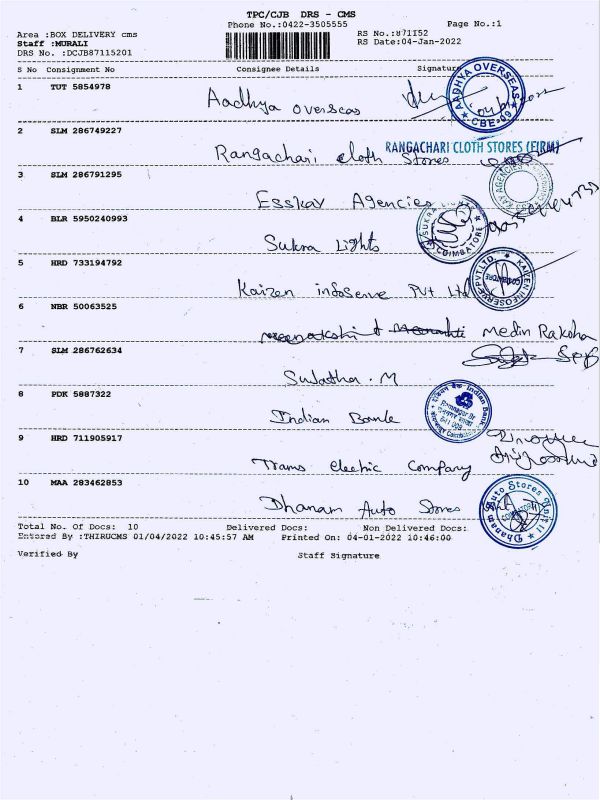 TPC/CJB DRS - CMS
Phone No.:0422-3505555
Page No.:1
Area :BOX DELIVERY cms
RS No.:871152
Staff :MURALI
RS Date:04-Jan-2022
DRS No. :DCJB87115201
S No Consignment No Consignee Details Signature
1 TUT 5854978
Aadhya overseas
AADHYA OVERSEAS
CBE-09
2 SLM 286749227
RANGACHARI CLOTH STORES (FIRM)
Rangachari cloth Stores
3 SLM 286791295
Esskay Agencies
4 BLR 5950240993
SUKRA
COIMBATORE
Sukra Lights
5 HRD 733194792
KAIZEN INFOSERVE PVT.LTD.
Kaizen infoserve Pvt Ltd
6 NBR 50063525
7 SLM 286762634
Sujatha . M
8 PDK 5887322
Indian Bank
Indian Bank
9 HRD 711905917
Trams electric Company
10 MAA 283462853
Dhanam Auto Stores
Dhanam Auto Stores
Total No. Of Docs: 10 Delivered Docs: Non Delivered Docs:
Entered By :THIRUCMS 01/04/2022 10:45:57 AM Printed On: 04-01-2022 10:46:00
Verified By Staff Signature